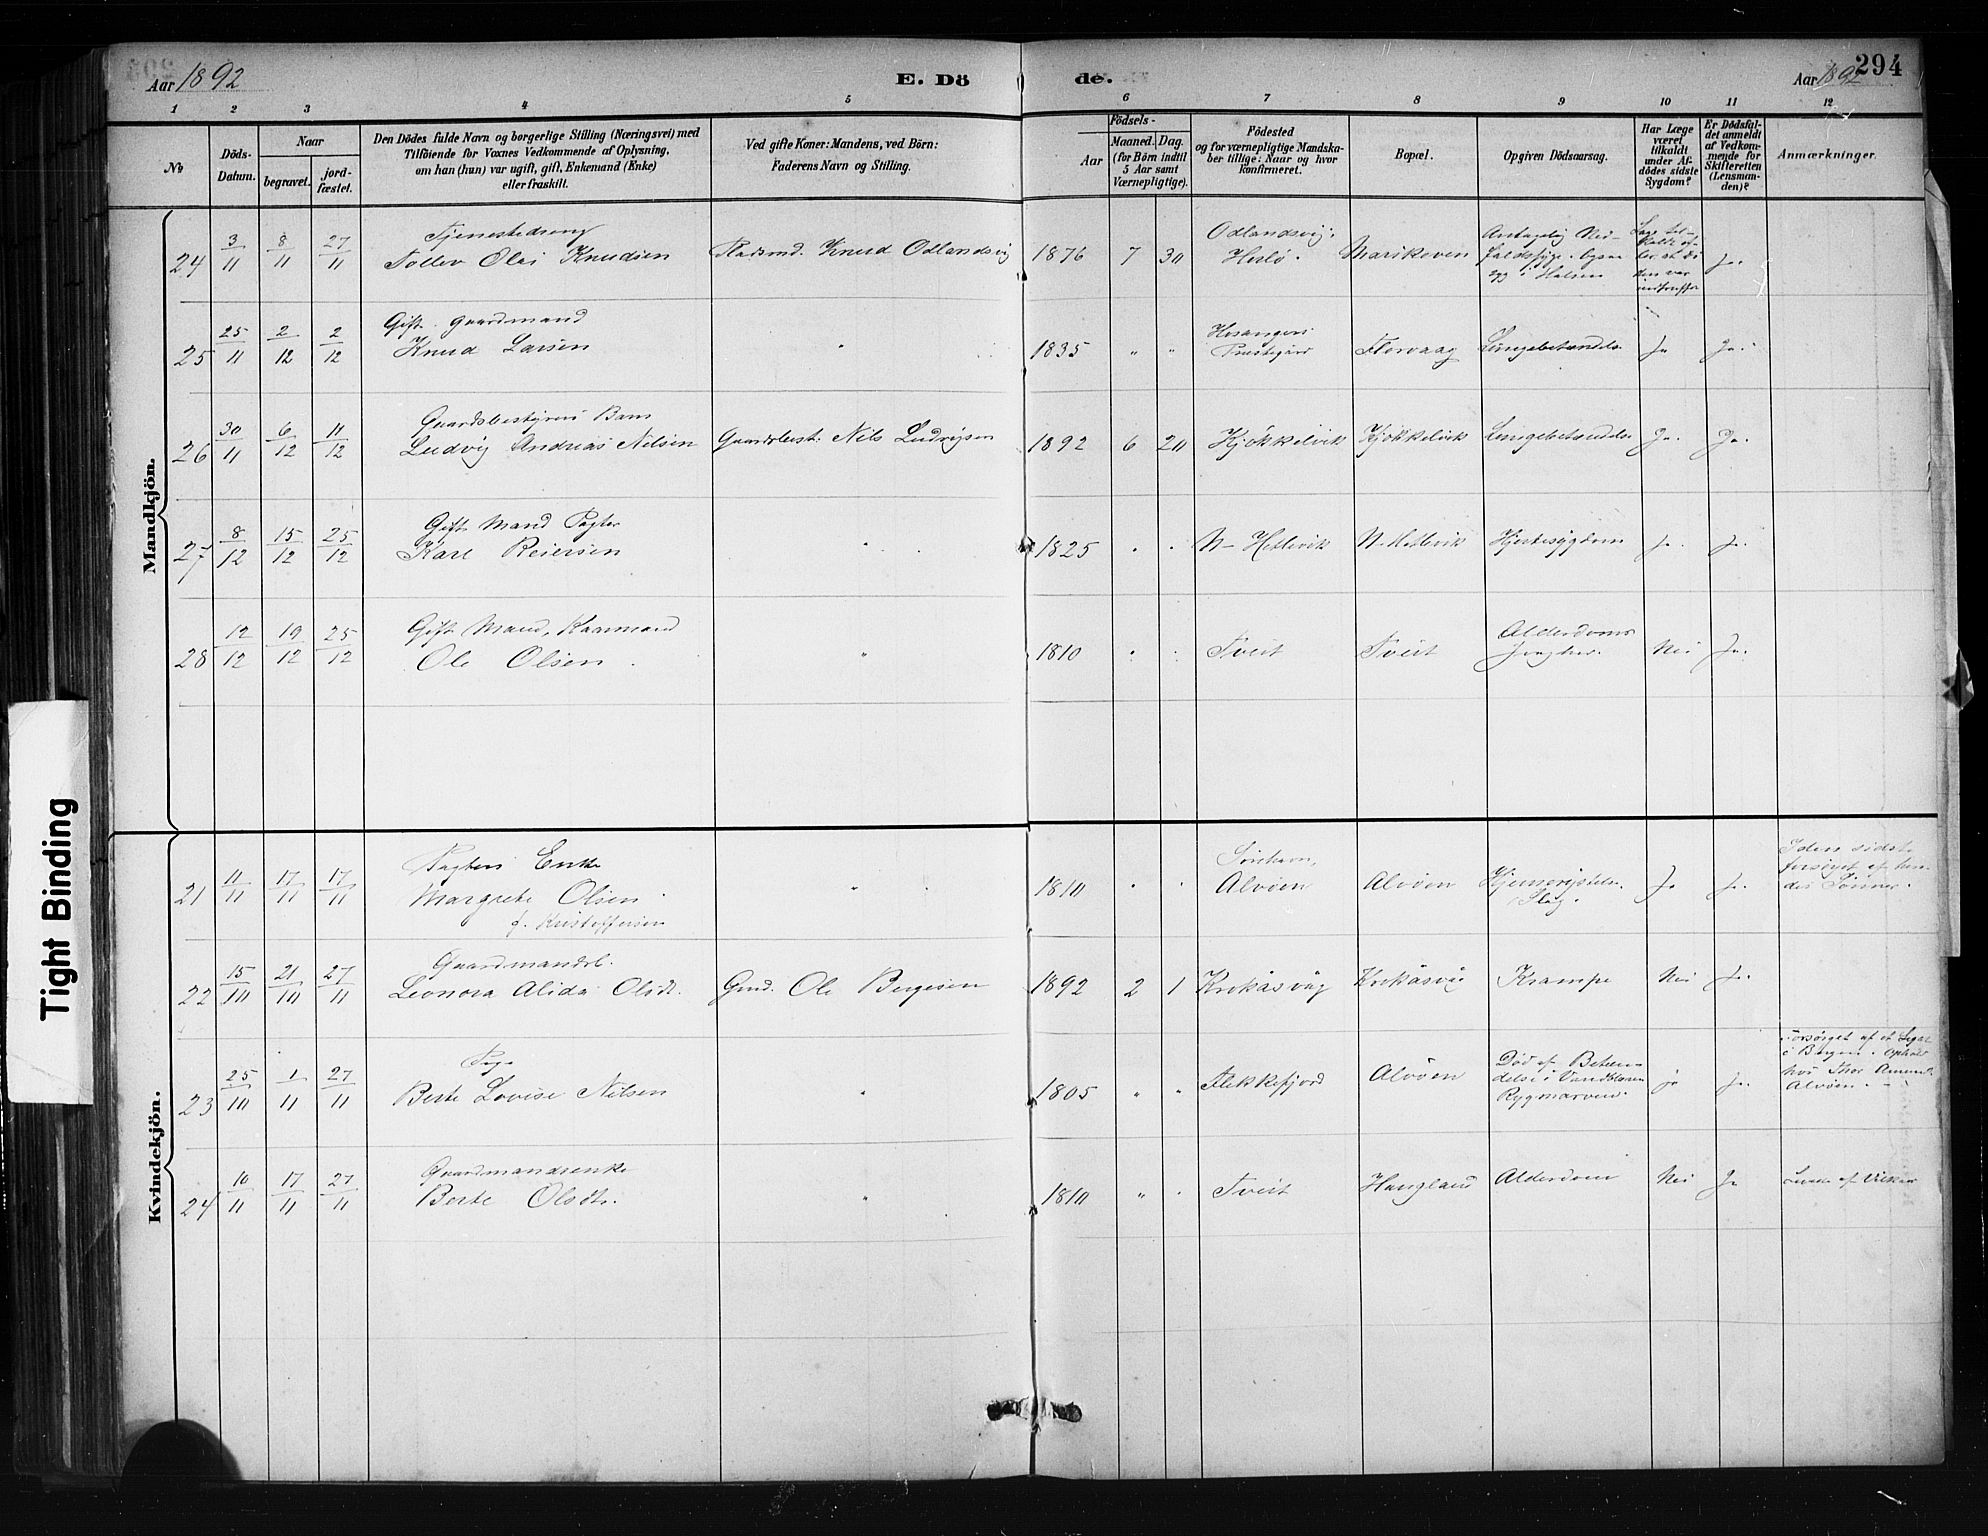 Aar 1892
E. Dö
de.
Aar 1892
294
1 2 3 4 5 6 7 8 9 10 11 12
No
Döds-
Datum.
Naar
begravet.
jord-
fæstet.
Den Dödes fulde Navn og borgerlige Stilling (Næringsvei) med
Tilföiende for Voxnes Vedkommende af Oplysning,
om han (hun) var ugift, gift, Enkemand (Enke)
eller fraskilt.
Ved gifte Koner: Mandens, ved Börn:
Faderens Navn og Stilling.
Födsels-
Aar
Maaned. Dag.
(for Börn indtil
5 Aar samt
Værnepligtige).
Födested
og for værnepligtige Mandska-
ber tillige: Naar og hvor
konfirmeret.
Bopæl.
Opgiven Dödsaarsag.
Har Læge
været
tilkaldt
under Af-
dödes sidste
Sygdom?
Er Dödsfal-
det anmeldt
af Vedkom-
mende for
Skifteretten
(Lensman-
den)?
Anmærkninger.
Mandkjön.
24 3/11 8/11 27/11
Tjenestedreng
Tollev Olai Knudsen
Pladsmd. Knud Odlandsvig
1876 7 30
Odlandsvig,
Herlö.
Marikoven
Antagelig Ned-
faldssyge. Ogsaa
i Halsen
Ja.
25 25/11 2/12 2/12
Gift. Gaardmand
Knud Larsen
"
1835 " "
Hosangers
Præstegård
Florvaag
Lungebetændels.
Ja Ja.
26 30/11 6/12 11/12
Gaardsbestyrers Barn
Ludvig Andreas Nilsen
Gaardsbest. Nils Ludvigsen
1892 6 20
Kjökkelvik
Kjökkelvik
Lungebetændelse
Ja. Ja.
27 8/12 15/12 25/12
Gift Mand Pagter
Karl Reiersen
"
1825 " "
N- Hetlevik
N- Hetlevik
Hjertesygdom
Ja. Ja.
28 12/12 19/12 25/12
Gift Mand, Kaarmand
Ole Olsen
"
1810 " "
Tveit
Tveit
Alderdoms
Nei Ja.
Kvindekjön.
21 11/11 17/11 17/11
Pagters Enke
Margrete Olsen
f. Kristoffersen
"
1810 " "
Alvöen
Alvöen
Hjernerystelse
Slag.
Ja Ja.
I den sidste
forsörget af hen-
des Sönner.
22 15/10 21/10 27/11
Gaardmandsb.
Leonora Alida Olsdt.
Gmd. Ole Bergesen
1892 2 1
Krokåsvåg
Krokåsvåg
Krampe
Nei Ja.
23 25/10 1/11 27/11
Pige
Berte Lovise Nilsen
"
1805 " "
Flekkefjord
Alvöen
Död af Betæn-
delse i Vandblæren
Rygmarven.
ja Ja.
Forsörget af et Legat
i Bergen. Ophold
hos Thor Amund.
Alvöen.
24 10/11 17/11 27/11
Gaardmandsenke
Berte Olsdt.
"
1810 " "
Tveit
Haugland
Alderdom
Nei Ja
Levede af Vilkår
Tight Binding